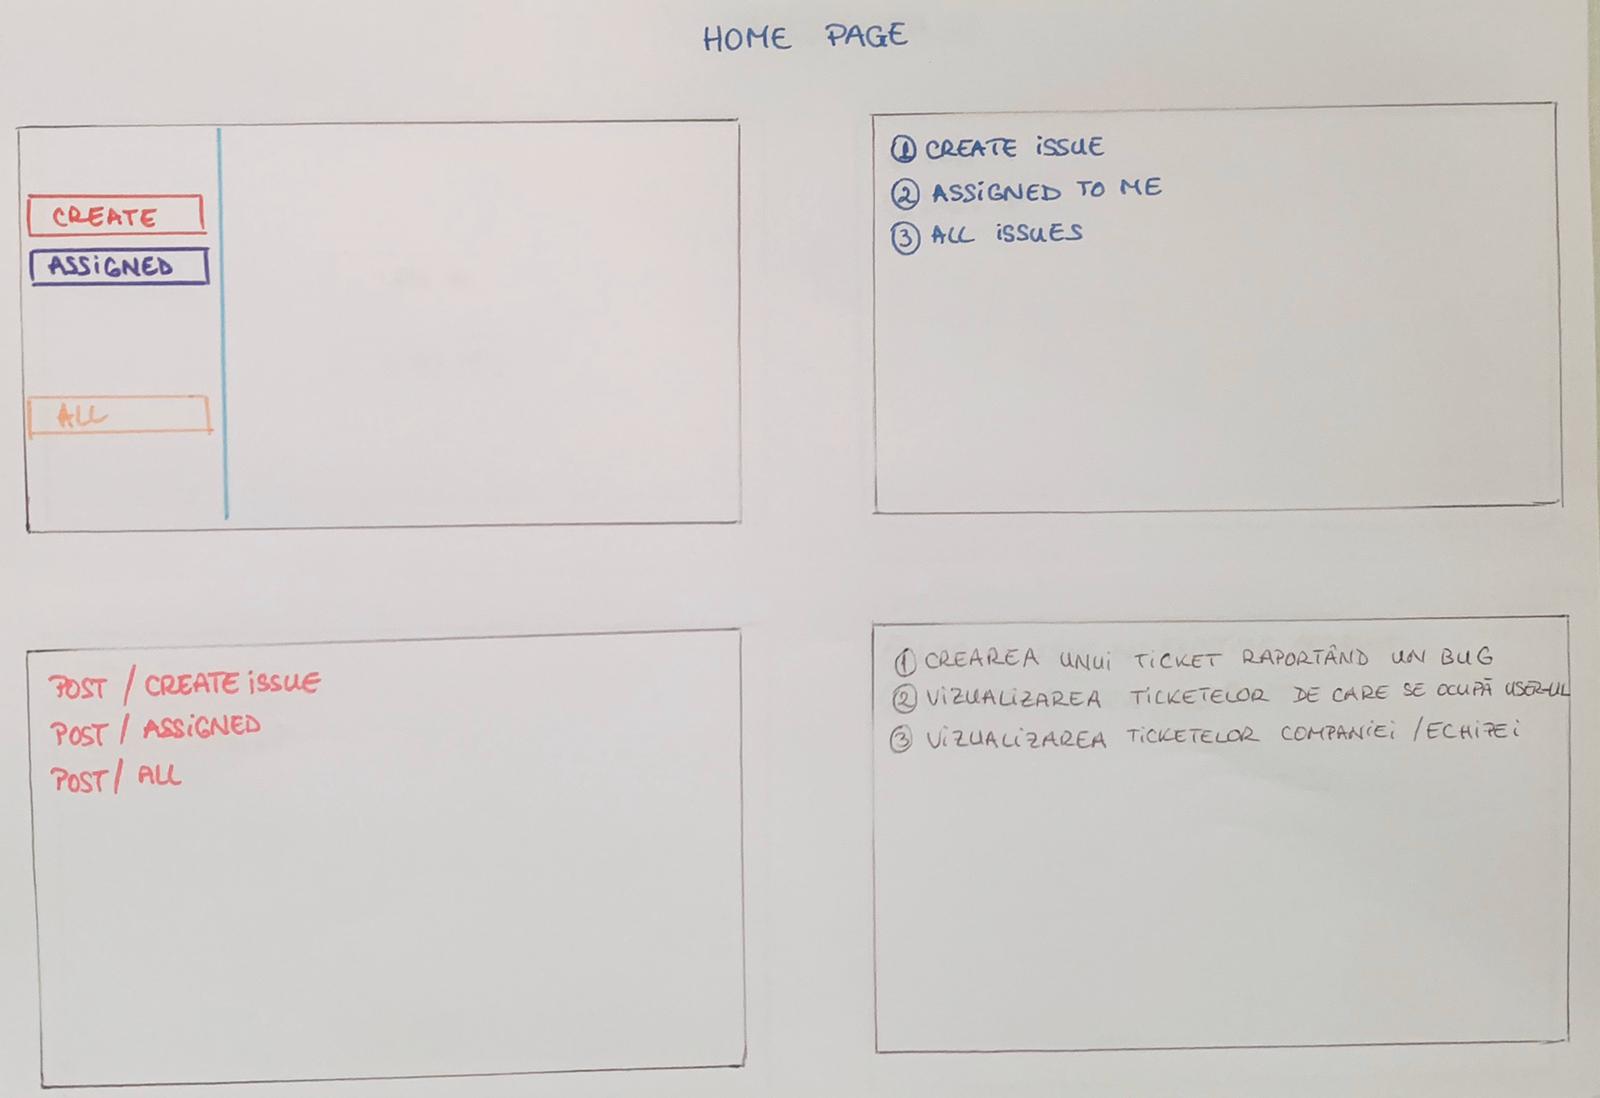 HOME PAGE
CREATE
ASSIGNED
ALL
① CREATE ISSUE
② ASSIGNED TO ME
③ ALL ISSUES
POST / CREATE ISSUE
POST / ASSIGNED
POST / ALL
① CREAREA UNUI TICKET RAPORTÂND UN BUG
② VIZUALIZAREA TICKETELOR DE CARE SE OCUPĂ USER-UL
③ VIZUALIZAREA TICKETELOR COMPANIEI / ECHIPEI